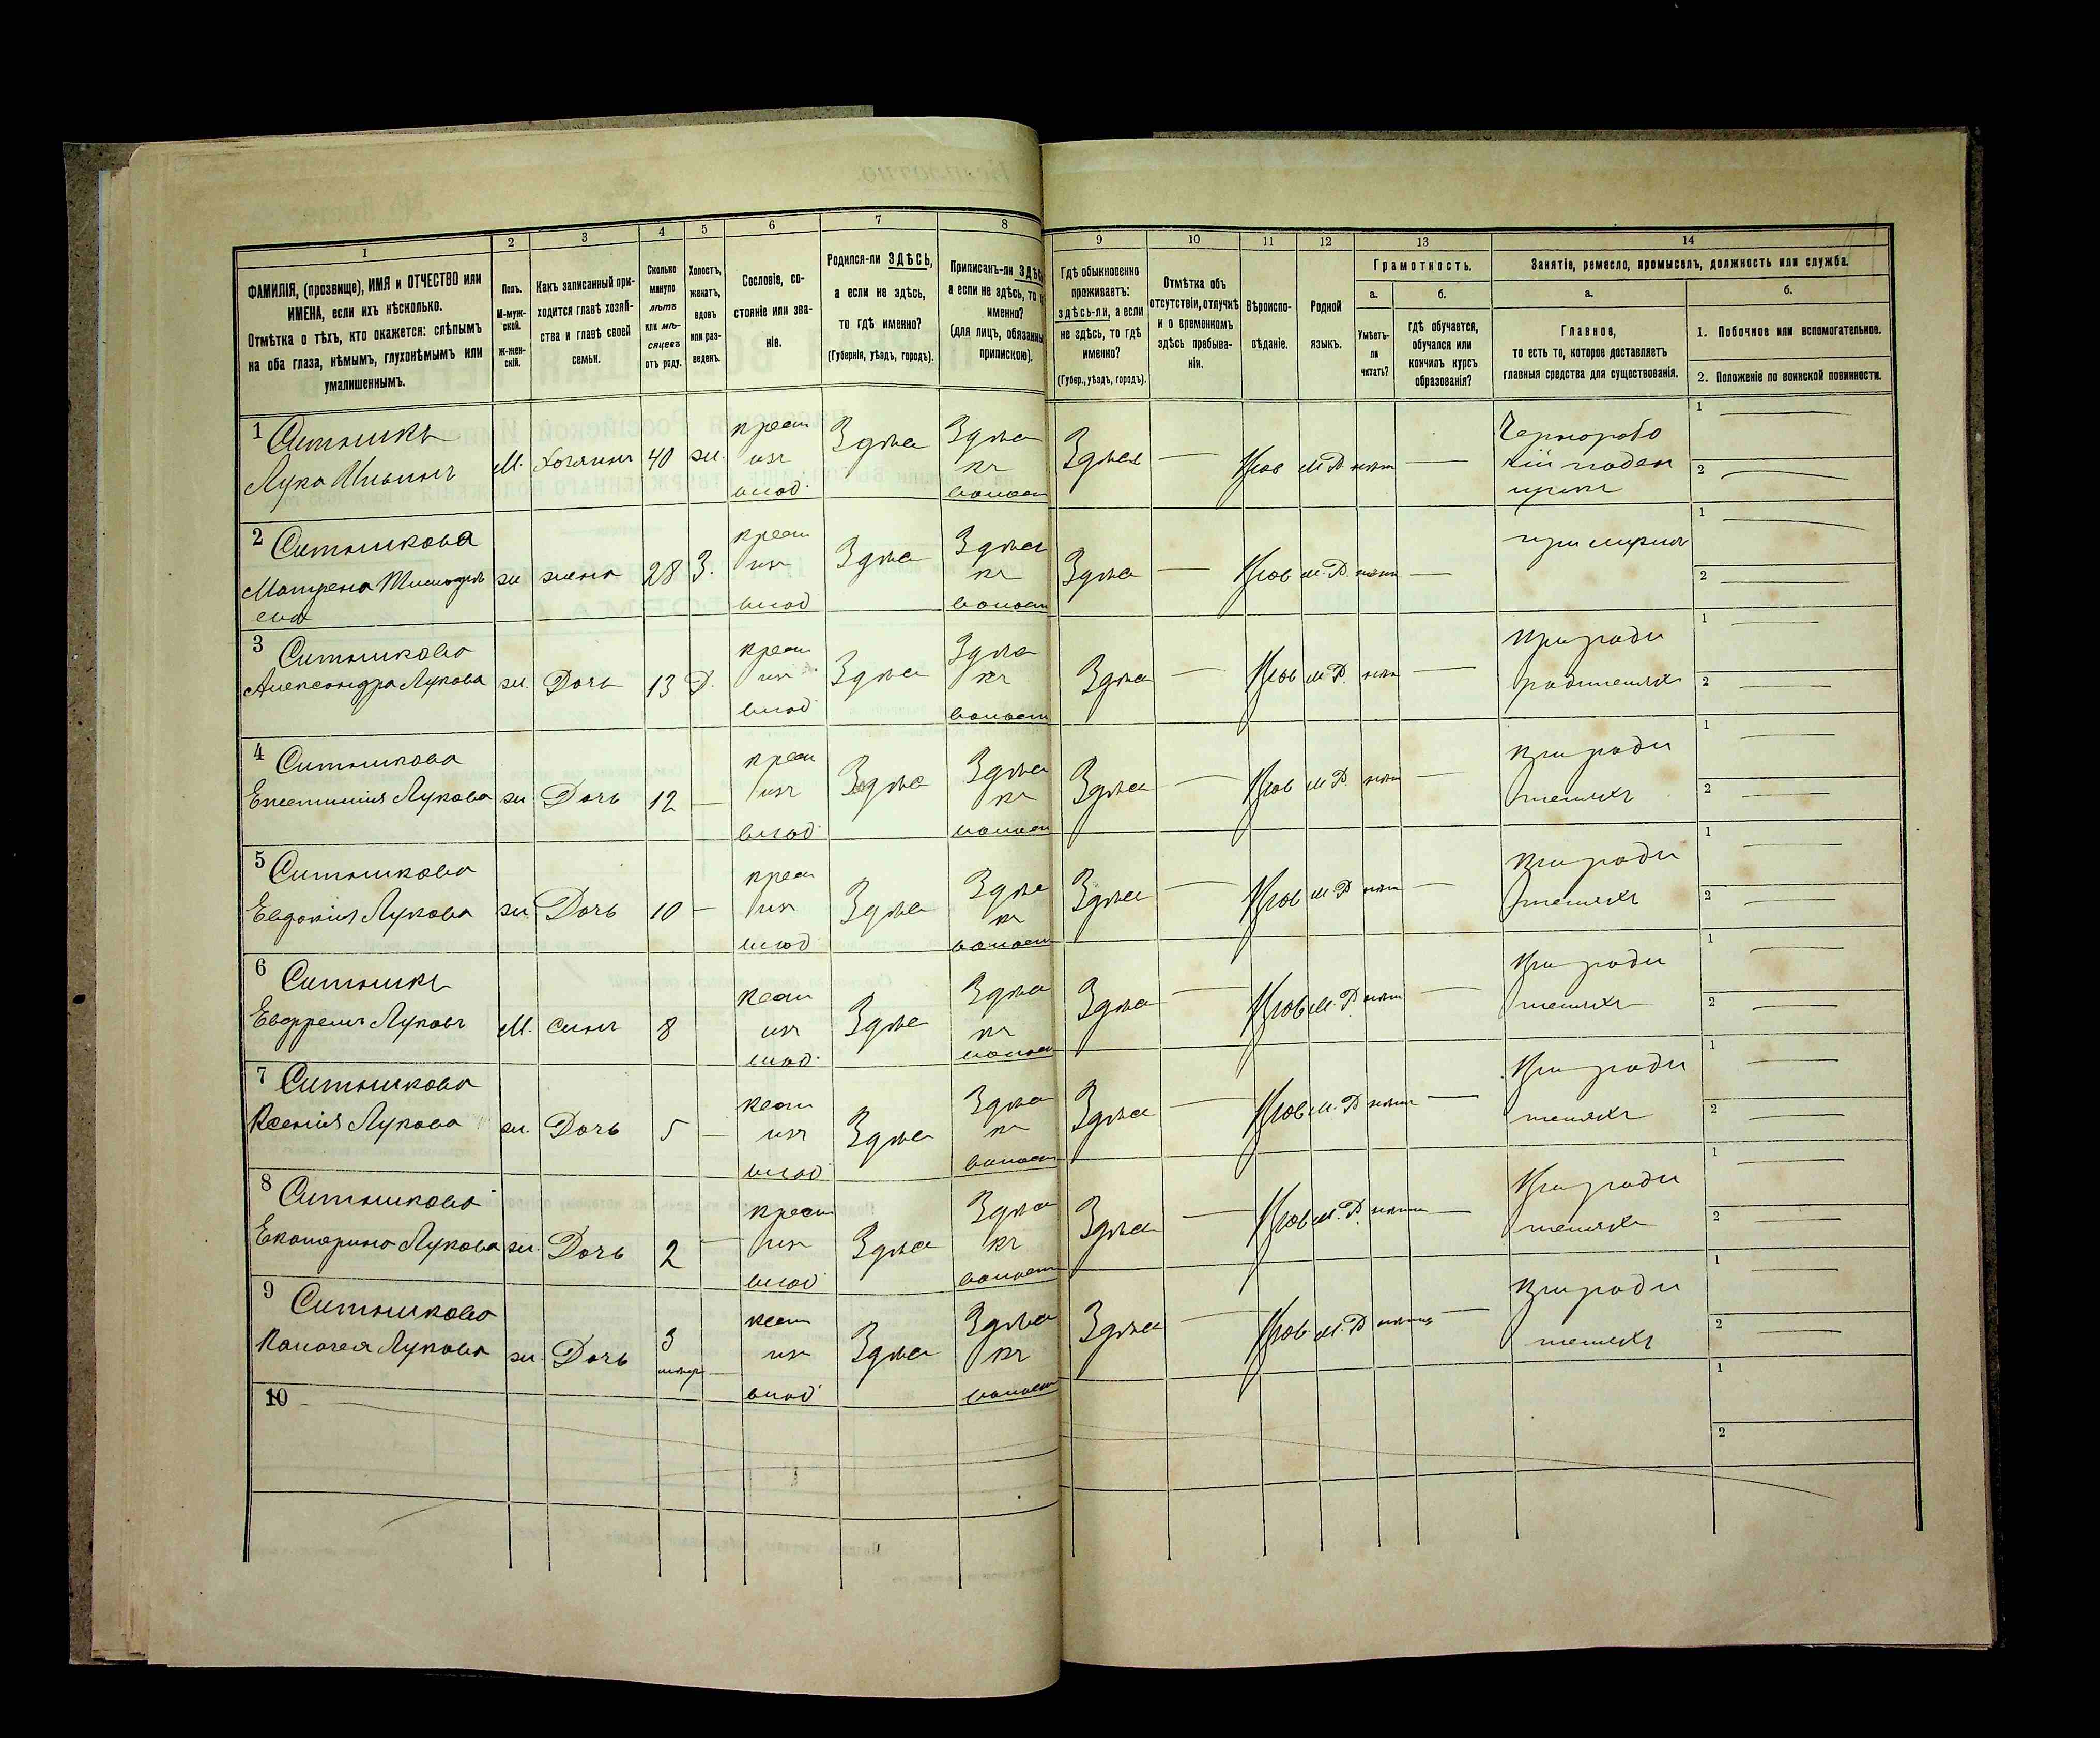 1
2
3
4
5
6
7
8
ФАМИЛІЯ, (прозвище), ИМЯ и ОТЧЕСТВО или
ИМЕНА, если ихъ нѣсколько.
Отмѣтка о тѣхъ, кто окажется: слѣпымъ
на оба глаза, нѣмымъ, глухонѣмымъ или
умалишеннымъ.
Полъ.
М-муж-
ской.
Ж-жен-
скій.
Какъ записанный при-
ходится главѣ хозяй-
ства и главѣ своей
семьи.
Сколько
минуло
лѣтъ
или мѣ-
сяцевъ
отъ роду.
Холостъ,
женатъ,
вдовъ
или раз-
веденъ.
Сословіе, со-
стояніе или зва-
ніе.
Родился-ли ЗДѢСЬ,
а если не здѣсь,
то гдѣ именно?
(Губернія, уѣздъ, городъ).
Приписанъ-ли
а если не здѣсь, то
именно?
(для лицъ, обязанны
припискою).
9
10
11
12
13
14
Гдѣ обыкновенно
проживаетъ:
здѣсь-ли, а если
не здѣсь, то гдѣ
именно?
(Губер., уѣздъ, городъ).
Отмѣтка объ
отсутствіи, отлучкѣ
и о временномъ
здѣсь пребыва-
ніи.
Вѣроиспо-
вѣданіе.
Родной
языкъ.
Грамотность.
а.
Умѣетъ-
ли
читать?
б.
гдѣ обучается,
обучался или
кончилъ курсъ
образованія?
Занятіе, ремесло, промыселъ, должность или служба.
а.
Главное,
то есть то, которое доставляетъ
главныя средства для существованія.
б.
1. Побочное или вспомогательное.
2. Положеніе по воинской повинности.
1 Ситникъ
Лука Ильинъ
М. Хозяинъ 40 ж.
крест
изъ
влад.
Здѣсь
Здѣсь
къ
волост
Здѣсь — Прав М.Р. нѣтъ —
Чернорабо
чій поден
щикъ
1 —
2 —
2 Ситникова
Матрена
ева
ж жена 28 З.
крест
изъ
влад
Здѣсь
Здѣсь
къ
волост
Здѣсь — Прав М.Р. нѣтъ —
при мужѣ
1 —
2 —
3 Ситникова
Александра Лукова
ж. Дочь 13 Д.
крест
изъ
влад
Здѣсь
Здѣсь
къ
волост
Здѣсь — Прав М.Р. нѣтъ —
При роди
родителяхъ
1 —
2 —
4 Ситникова
Лукова
ж. Дочь 12 —
крест
изъ
влад
Здѣсь
Здѣсь
къ
волост
Здѣсь — Прав М.Р. нѣтъ —
При роди
теляхъ
1 —
2 —
5 Ситникова
Евдокія Лукова
ж Дочь 10 —
крест
изъ
влад
Здѣсь
Здѣсь
къ
волост
Здѣсь — Прав М.Р. нѣтъ —
При роди
теляхъ
1 —
2 —
6 Ситникъ
Луковъ
М. сынъ 8
кест
изъ
влад.
Здѣсь
Здѣсь
къ
волост
Здѣсь — Прав М.Р. нѣтъ —
При роди
теляхъ
1 —
2 —
7 Ситникова
Ксенія Лукова
ж. Дочь 5 —
кест
изъ
влад
Здѣсь
Здѣсь
къ
волост
Здѣсь — Прав М.Р. нѣтъ —
При роди
теляхъ
1 —
2 —
8 Ситникова
Екатерина Лукова
ж. Дочь 2 —
крест
изъ
влад
Здѣсь
Здѣсь
къ
волост
Здѣсь — Прав М.Р. нѣтъ —
При роди
теляхъ
1 —
2 —
9 Ситникова
Лукова
ж. Дочь 3 —
кест
изъ
влад
Здѣсь
Здѣсь
къ
волост
Здѣсь — Прав М.Р. нѣтъ —
При роди
теляхъ
1 —
2 —
10
1
2